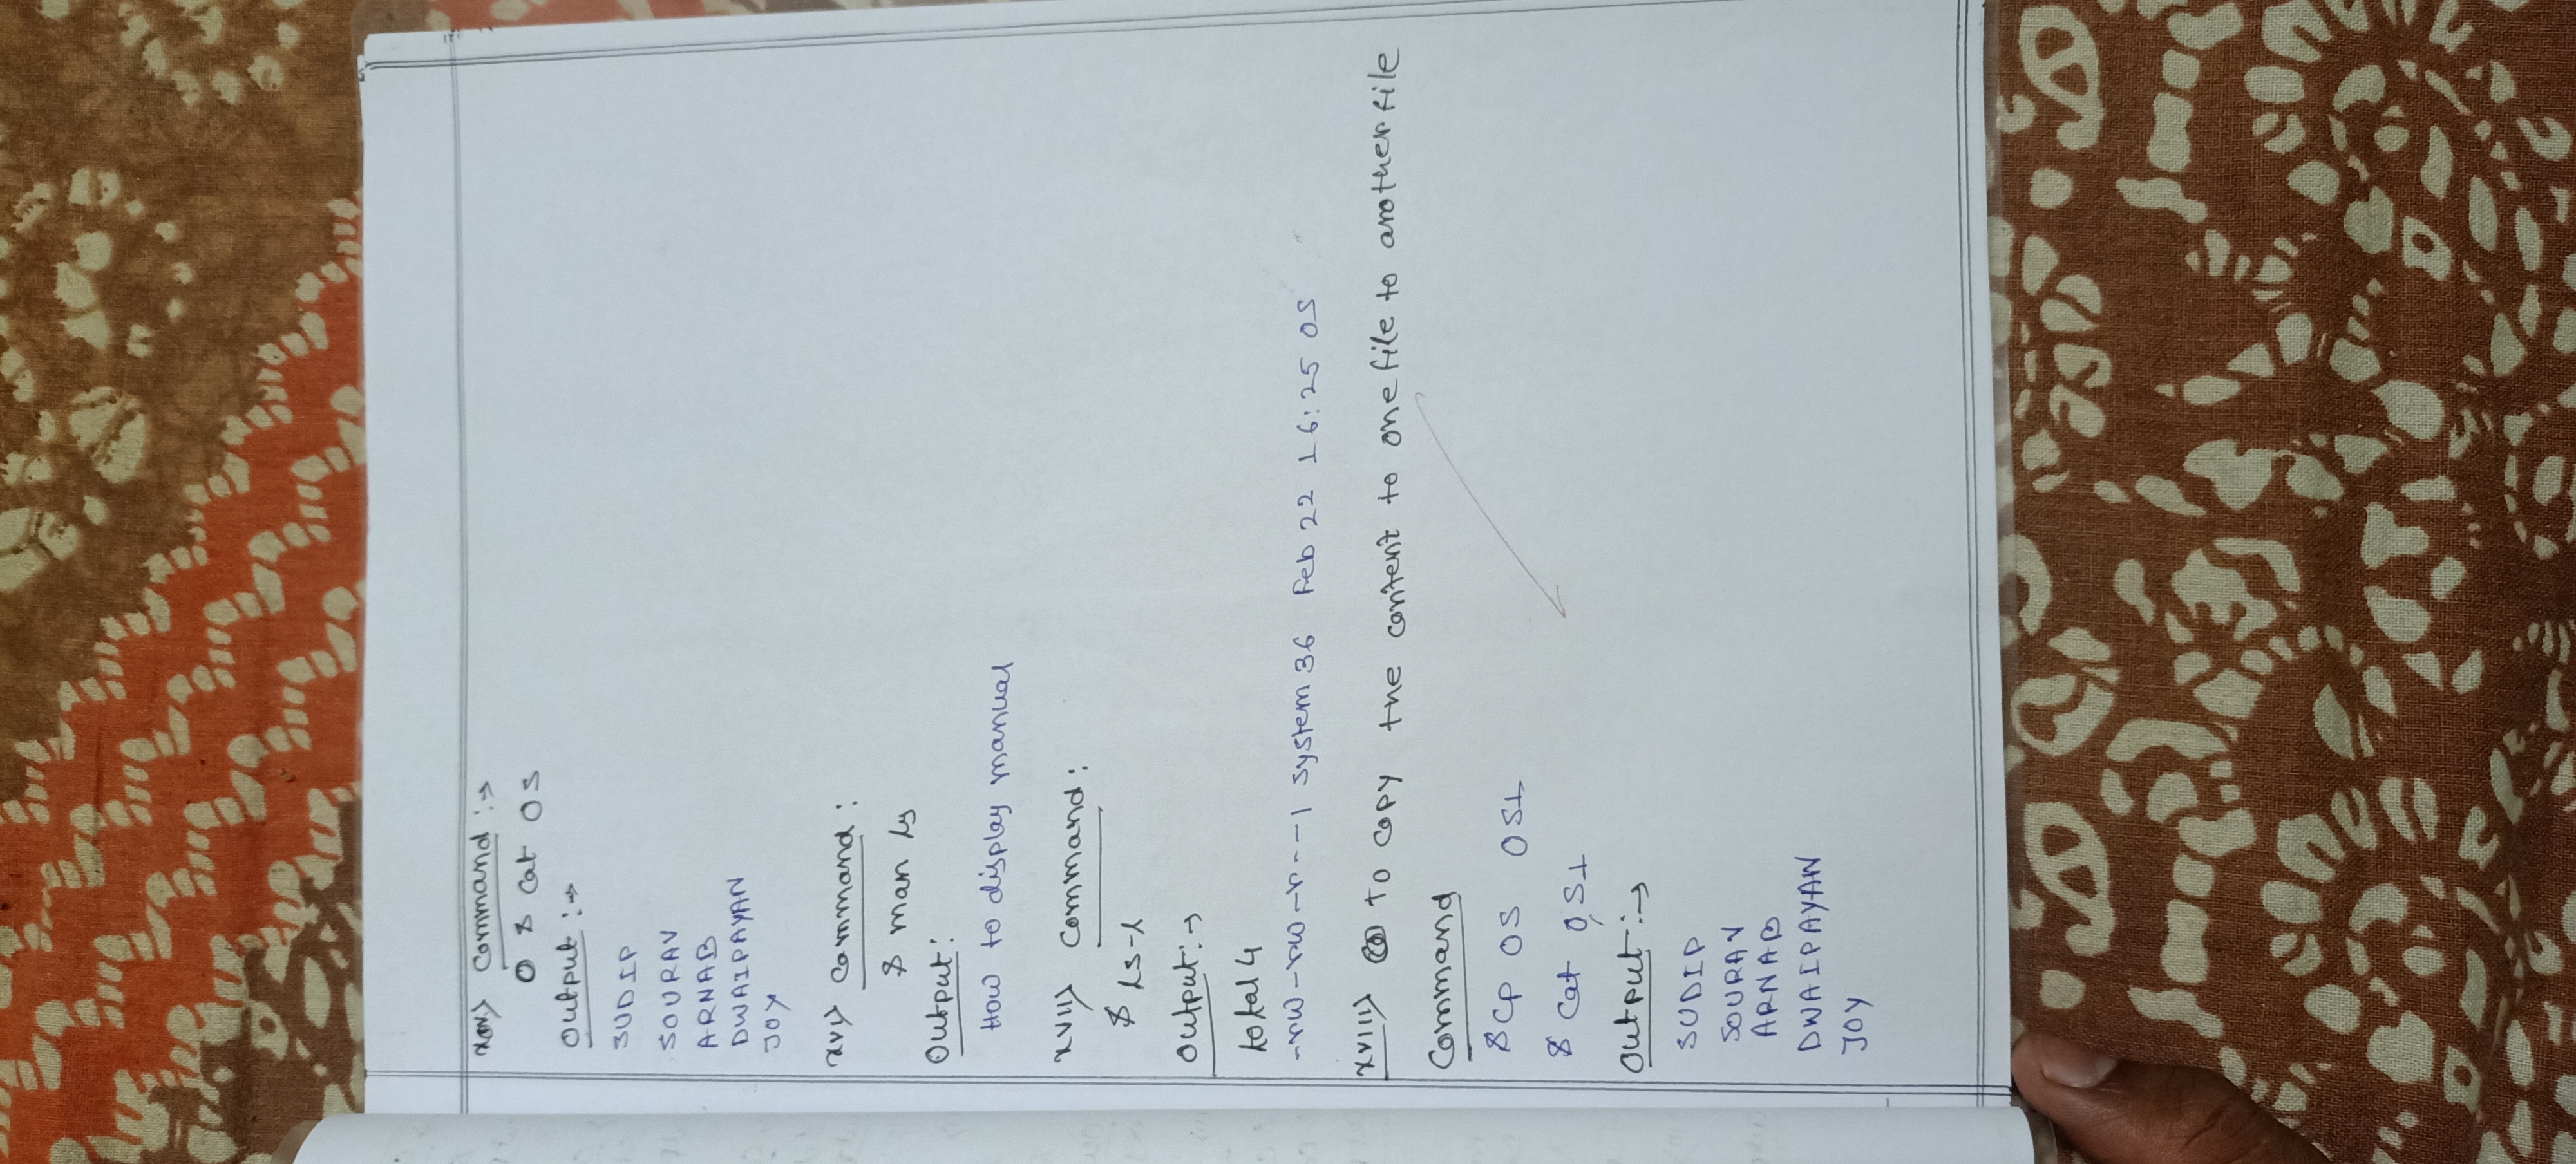 xv> Command :→
$ cat OS
Output :→
SUDIP
SOURAV
ARNAB
DWAIPAYAN
JOY
xvi> Command :
$ man ls
Output :
How to display manual
xvii> Command :
$ ls-l
Output :→
total 4
-rw-rw-r--1 system 36 Feb 22 16:25 OS
xviii> to copy the content to one file to another file
Command
$ cp OS OS1
$ cat OS1
Output :→
SUDIP
SOURAV
ARNAB
DWAIPAYAN
JOY